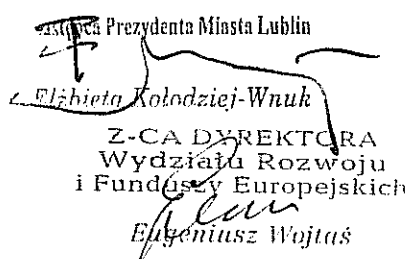 Zastępca Prezydenta Miasta Lublin
Elżbieta Kołodziej-Wnuk
Z-CA DYREKTORA
Wydziału Rozwoju
i Funduszy Europejskich
Eugeniusz Wojtaś